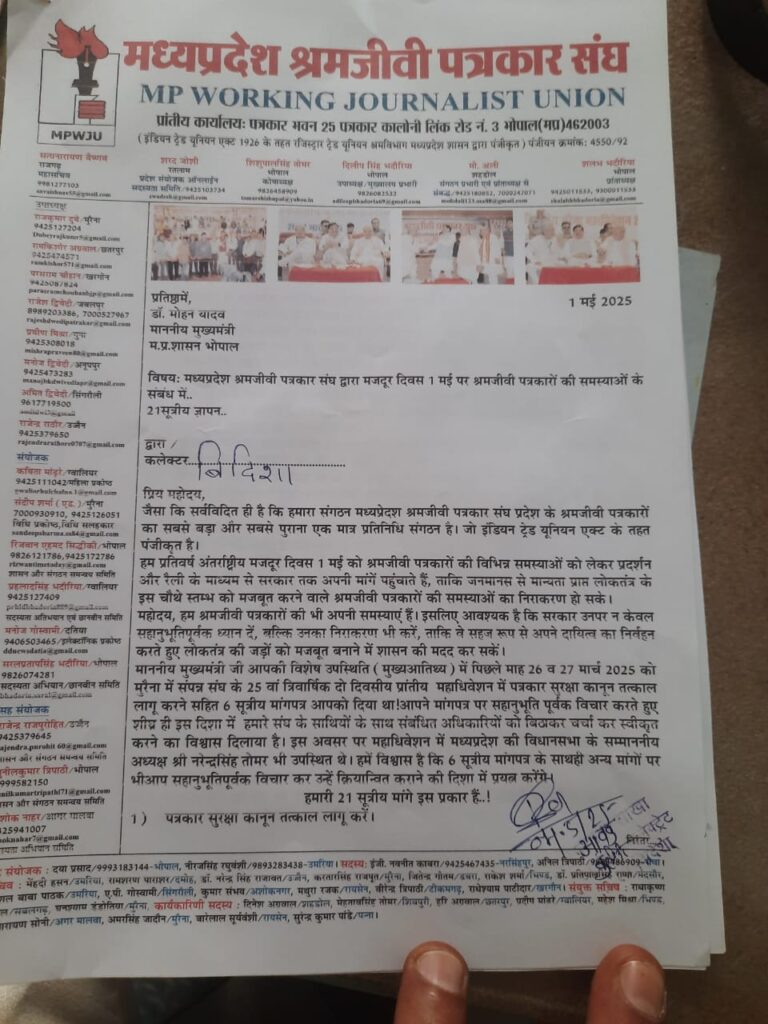 मध्यप्रदेश श्रमजीवी पत्रकार संघ
MP WORKING JOURNALIST UNION
प्रांतीय कार्यालयः पत्रकार भवन 25 पत्रकार कालोनी लिंक रोड नं. 3 भोपाल(मप्र)462003
( इंडियन ट्रेड यूनियन एक्ट 1926 के तहत रजिस्टार ट्रेड यूनियन श्रमविभाग मध्यप्रदेश शासन द्वारा पंजीकृत ) पंजीयन क्रमांक: 4550/92
MPWJU
सत्यनारायण वैष्णव
राजगढ़
महासचिव
9981277103
शरद जोशी
रतलाम
प्रदेश संयोजक ऑनलाईन
सदस्यता समिति/9425103734
शिशुपालसिंह तोमर
भोपाल
कोषाध्यक्ष
9826458909
दिलीप सिंह भदौरिया
भोपाल
उपाध्यक्ष-मुख्यालय प्रभारी
9826082533
मो. अली
शहडोल
संगठन प्रभारी एवं प्रांताध्यक्ष से
संबद्ध/9425180852, 7000247071
शलभ भदौरिया
भोपाल
प्रांताध्यक्ष
9425011533, 9300911533
उपाध्यक्ष
राजकुमार दुबे/मुरैना
9425127204
रामकिशोर अग्रवाल/छतरपुर
9425474571
परसराम चौहान/खरगौन
9425087824
राजेश द्विवेदी/जबलपुर
8989203386, 7000527967
प्रवीण मिश्रा/गुना
9425308018
मनोज द्विवेदी/अनूपपुर
9425473283
अमित द्विवेदी/सिंगरौली
9617719500
राजेन्द्र राठौर/उज्जैन
9425379650
संयोजक
कविता मांढरे/ग्वालियर
9425111042/महिला प्रकोष्ठ
संदीप शर्मा (एड.)/मुरैना
7000930910, 9425126051
विधि प्रकोष्ठ,विधि सलहकार
रिजवान एहमद सिद्धीकी/भोपाल
9826121786,9425172786
शासन और संगठन समन्वय समिति
प्रहलादसिंह भदौरिया/ग्वालियर
9425127409
सदस्यता अतिभयान एवं छानबीन समिति
मनोज गोस्वामी/दतिया
9406503465/इलेक्ट्रॉनिक प्रकोष्ठ
सरलप्रतापसिंह भदौरिया/भोपाल
9826074281
सदस्यता अभियान/छानबीन समिति
सह संयोजक
राजेन्द्र राजपुरोहित/उज्जैन
9425379645
सुनीलकुमार त्रिपाठी/भोपाल
9999582150
शासन और संगठन समन्वय समिति
अशोक नाहर/आगर मालवा
9425941007
प्रतिष्ठामें,
1 मई 2025
डॉ. मोहन यादव
माननीय मुख्यमंत्री
म.प्र.शासन भोपाल
विषयः मध्यप्रदेश श्रमजीवी पत्रकार संघ द्वारा मजदूर दिवस 1 मई पर श्रमजीवी पत्रकारों की समस्याओं के
संबंध में..
21सूत्रीय ज्ञापन..
द्वारा /
कलेक्टर.......विदिशा.......
प्रिय महोदय,
जैसा कि सर्वविदित ही है कि हमारा संगठन मध्यप्रेदश श्रमजीवी पत्रकार संघ प्रदेश के श्रमजीवी पत्रकारों
का सबसे बड़ा और सबसे पुराना एक मात्र प्रतिनिधि संगठन है। जो इंडियन ट्रेड यूनियन एक्ट के तहत
पंजीकृत है।
हम प्रतिवर्ष अंतर्राष्ट्रीय मजदूर दिवस 1 मई को श्रमजीवी पत्रकारों की विभिन्न समस्याओं को लेकर प्रदर्शन
और रैली के माध्यम से सरकार तक अपनी मांगें पहुंचाते हैं, ताकि जनमानस से मान्यता प्राप्त लोकतंत्र के
इस चौथे स्तम्भ को मजबूत करने वाले श्रमजीवी पत्रकारों की समस्याओं का निराकरण हो सके।
महोदय, हम श्रमजीवी पत्रकारों की भी अपनी समस्याएं हैं। इसलिए आवश्यक है कि सरकार उनपर न केवल
सहानुभूतिपूर्वक ध्यान दें, बल्कि उनका निराकरण भी करें, ताकि वे सहज रूप से अपने दायित्व का निर्वहन
करते हुए लोकतंत्र की जड़ों को मजबूत बनाने में शासन की मदद कर सकें।
माननीय मुख्यमंत्री जी आपकी विशेष उपस्थिति ( मुख्यआतिथ्य ) में पिछले माह 26 व 27 मार्च 2025 को
मुरैना में संपन्न संघ के 25 वां त्रिवार्षिक दो दिवसीय प्रांतीय महाधिवेशन में पत्रकार सुरक्षा कानून तत्काल
लागू करने सहित 6 सूत्रीय मांगपत्र आपको दिया था!आपने मांगपत्र पर सहानुभूति पूर्वक विचार करते हुए
शीघ्र ही इस दिशा में हमारे संघ के साथियों के साथ संबंधित अधिकारियों को बिठाकर चर्चा कर स्वीकृत
करने का विश्वास दिलाया है। इस अवसर पर महाधिवेशन में मध्यप्रदेश की विधानसभा के सम्माननीय
अध्यक्ष श्री नरेन्द्रसिंह तोमर भी उपस्थित थे। हमें विश्वास है कि 6 सूत्रीय मांगपत्र के साथही अन्य मांगों पर
भीआप सहानुभूतिपूर्वक विचार कर उन्हें क्रियान्वित कराने की दिशा में प्रयत्न करेंगे।
हमारी 21 सूत्रीय मांगे इस प्रकार हैं..!
1 ) पत्रकार सुरक्षा कानून तत्काल लागू करें।
संयोजक : दया प्रसाद/9993183144-भोपाल, नीरजसिंह रघुवंशी/9893283438-उमरिया। सदस्य: इंजी. नवनीत काबरा/9425467435-नरसिंहपुर, अनिल त्रिपाठी/